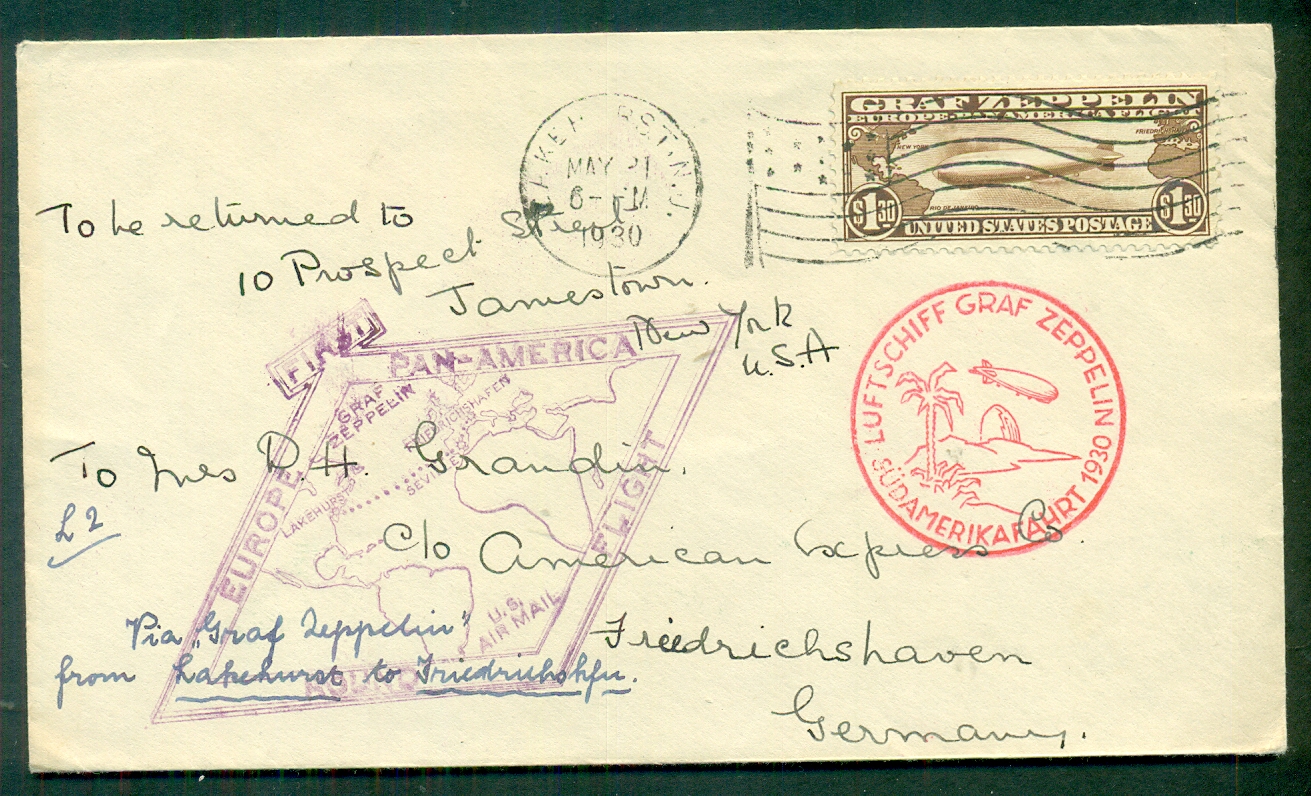 GRAF ZEPPELIN
EUROPE-PAN AMERICA FLIGHT
NEW YORK
FRIEDRICHSHAFEN
RIO DE JANEIRO
$1.30 $1.30
UNITED STATES POSTAGE
LAKEHURST N.J.
MAY 21
6-PM
1930
To be returned to
10 Prospect Street
Jamestown.
New York
U.S.A
FIRST
EUROPE PAN-AMERICA
ROUND FLIGHT
GRAF
ZEPPELIN
FRIEDRICHSHAFEN
SEVILLE
LAKEHURST
U.S.
AIR MAIL
LUFTSCHIFF GRAF ZEPPELIN
SÜDAMERIKAFAHRT 1930
To Mrs D. H. Grandin.
L2
C/o American Express Co.
Friedrichshaven
Germany.
Via „Graf Zeppelin"
from Lakehurst to Friedrichshfn.